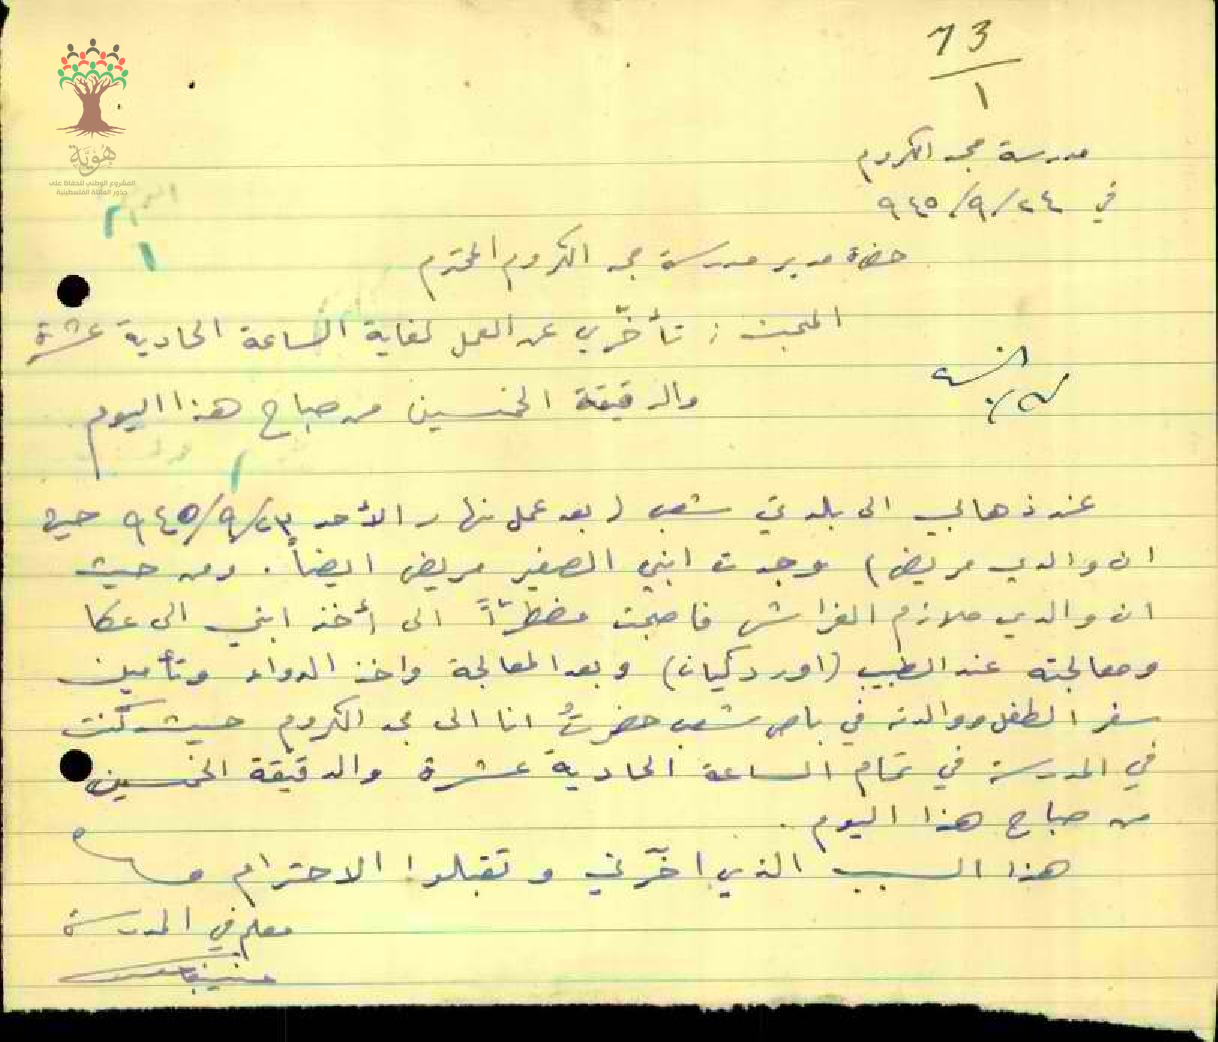 73
١
هُوِيَّة
المشروع الوطني للحفاظ على
جذور العائلة الفلسطينية
مدرسة مجد الكروم
في ٢٤/٩/٩٤٥
حضرة مدير مدرسة مجد الكروم المحترم
المبحث : تأخّري عن العمل لغاية الساعة الحادية عشرة
والدقيقة الخمسين من صباح هذا اليوم
عند ذهابي الى بلدتي شعب (بعد عمل نهار الأحد ٢٣/٩/٩٤٥ حيث
ان والدي مريض) وجدت ابني الصغير مريض ايضاً. ومن حيث
ان والدي ملازم الفراش فاصبحت مضطرّاً الى أخذ ابني الى عكا
ومعالجته عند الطبيب (اوردكيان) وبعد المعالجة واخذ الدواء وتأمين
سفر الطفل ووالدته في باص شعب حضرتُ انا الى مجد الكروم حيث كنت
في المدرسة في تمام الساعة الحادية عشرة والدقيقة الخمسين
من صباح هذا اليوم.
هذا السبب الذي اخّرني وتقبلوا الاحترام
معلم في المدرسة